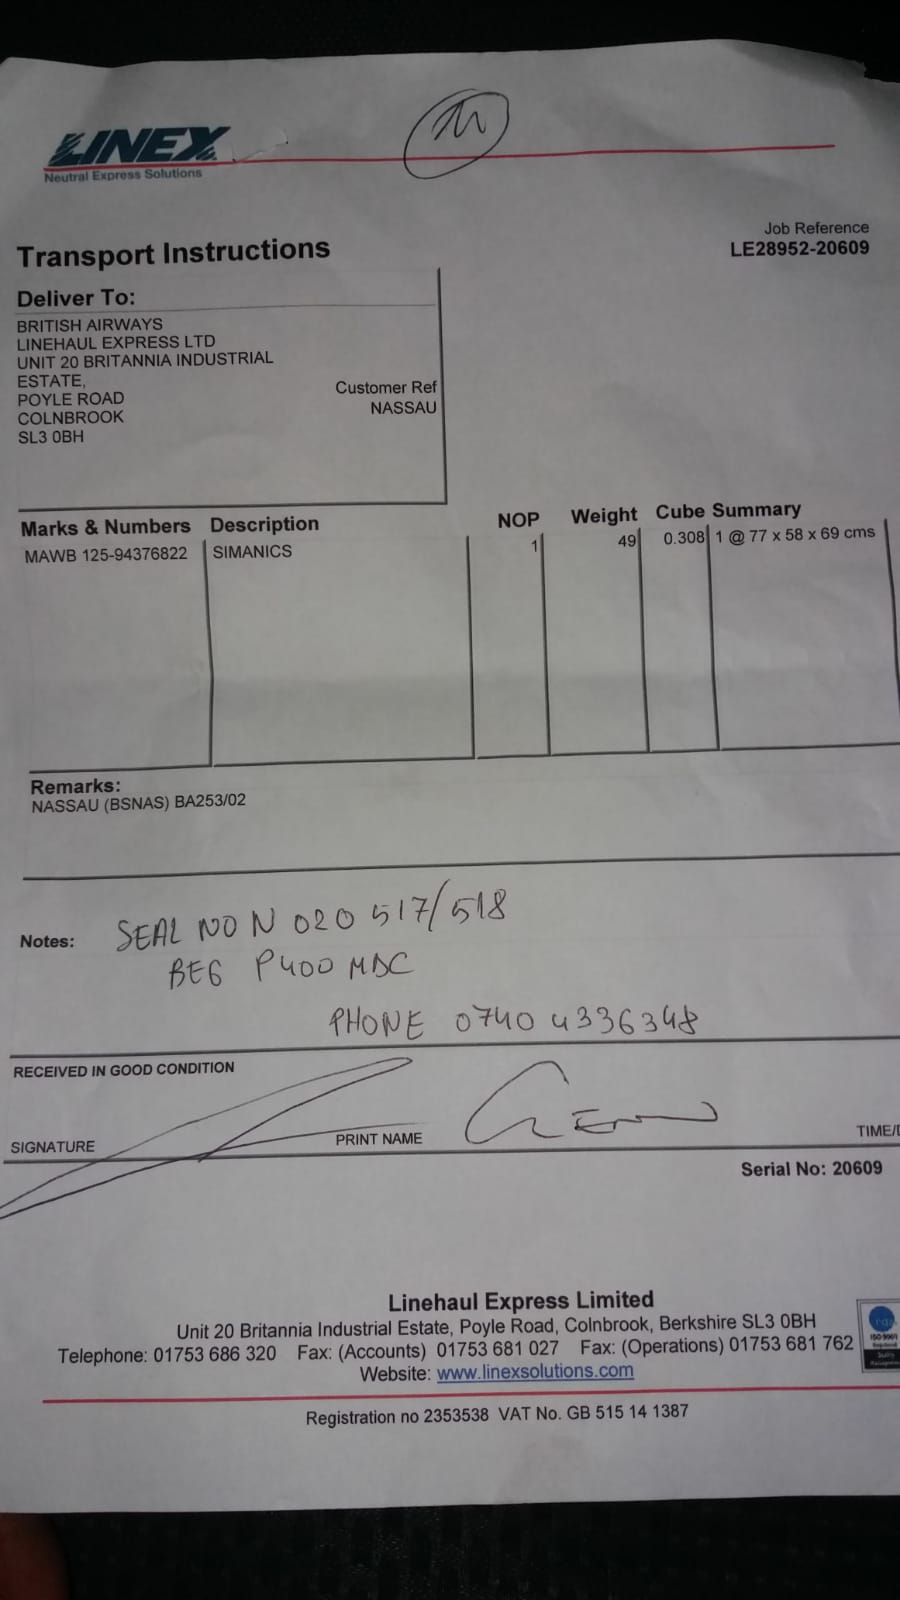 LINEX
Neutral Express Solutions
Job Reference
LE28952-20609
Transport Instructions
Deliver To:
BRITISH AIRWAYS
LINEHAUL EXPRESS LTD
UNIT 20 BRITANNIA INDUSTRIAL
ESTATE,
POYLE ROAD
COLNBROOK
SL3 0BH
Customer Ref
NASSAU
Marks & Numbers Description NOP Weight Cube Summary
MAWB 125-94376822 SIMANICS 1 49 0.308 1 @ 77 x 58 x 69 cms
Remarks:
NASSAU (BSNAS) BA253/02
Notes: SEAL NO N 020 517/518
BEG P400 MDC
PHONE 0740 4336348
RECEIVED IN GOOD CONDITION
SIGNATURE PRINT NAME TIME/
Serial No: 20609
Linehaul Express Limited
Unit 20 Britannia Industrial Estate, Poyle Road, Colnbrook, Berkshire SL3 0BH
Telephone: 01753 686 320 Fax: (Accounts) 01753 681 027 Fax: (Operations) 01753 681 762
Website: www.linexsolutions.com
Registration no 2353538 VAT No. GB 515 14 1387
ISO 9001